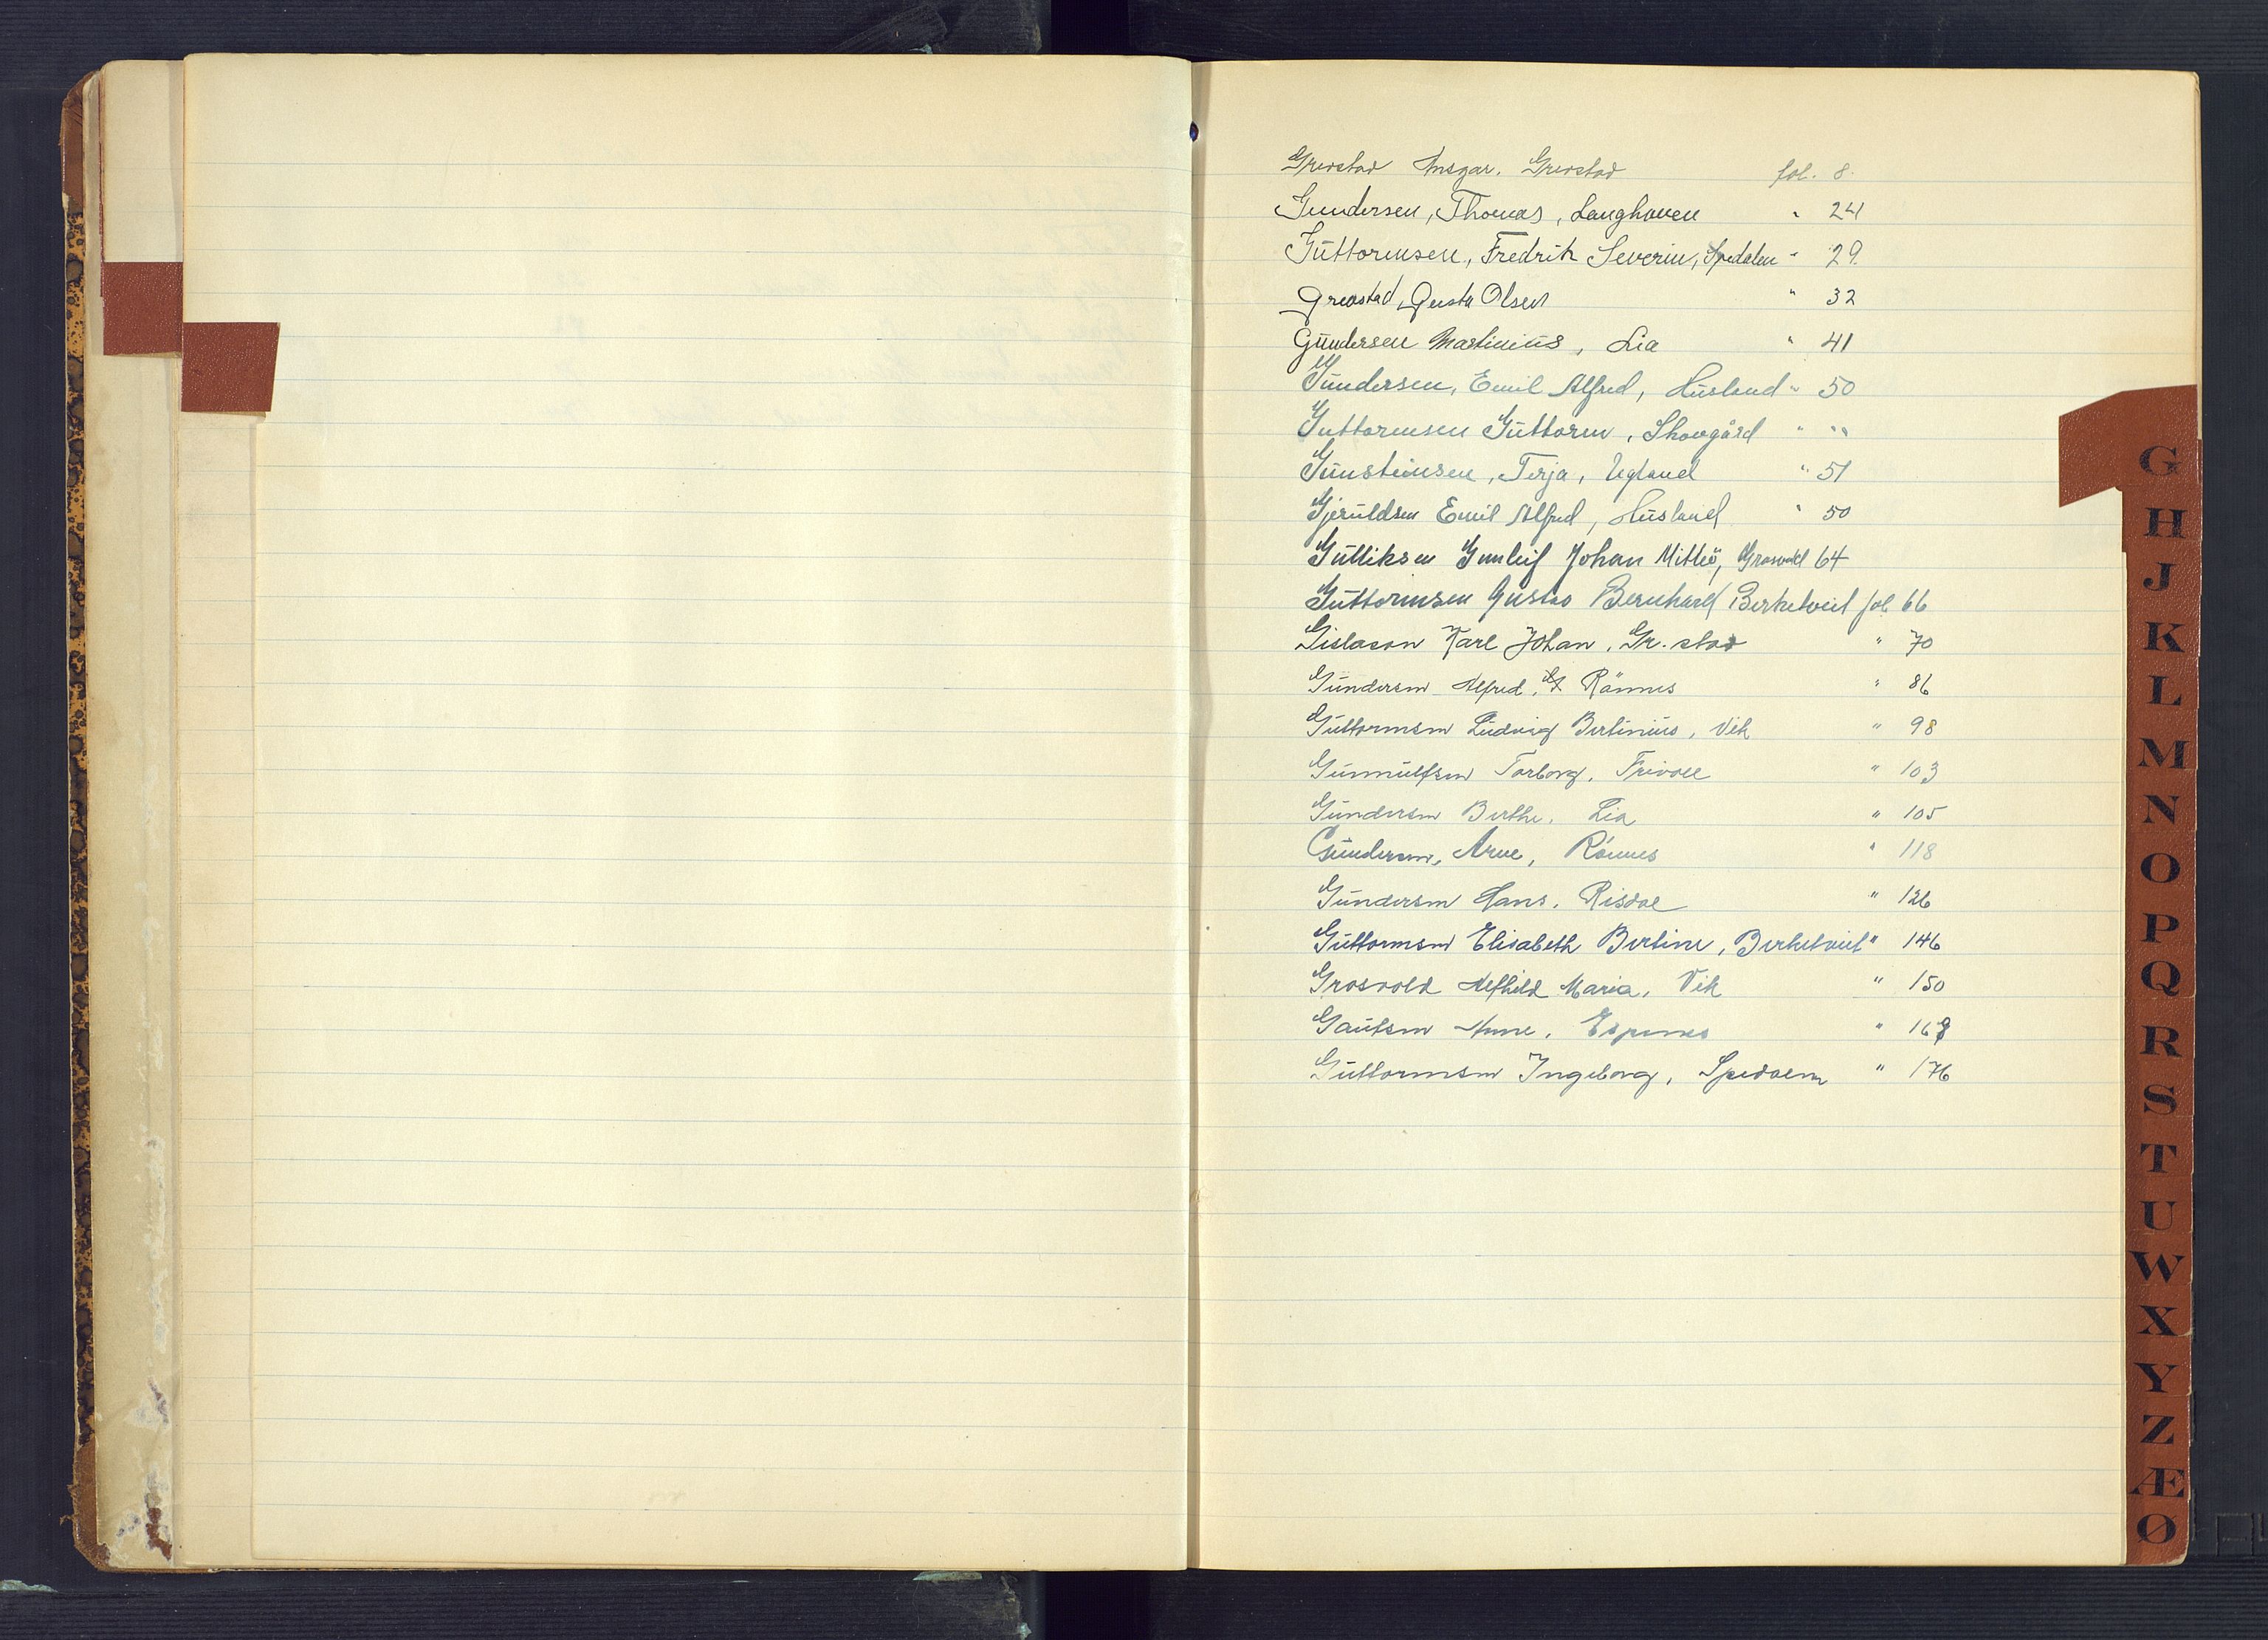 Grevstad Ansgar. Grevstad fol. 8.
Gundersen, Thomas, Langhaven " 24
Guttormsen, Fredrik Severin, Spedalen " 29.
Grevstad, Gusta Olsen " 32
Gundersen Martinius, Lia " 41
Gundersen, Emil Alfred, Husland " 50
Guttormsen Guttorm, Skovgård " "
Gunsteinsen, Terja, Ugland " 51
Gjeruldsen Emil Alfred, Husland " 50
Gulliksen Gunleif Johan 64
Guttormsen Gustav Bernhard Birketveit fol 66
Gislason Karl Johan, Gr.stad " 70
Gundersen Alfred, Rønnes " 86
Guttormsen Ludvig Bertinius, Vik " 98
Gunnulfsen Torborg, Frivoll " 103
Gundersen Berthe, Lia " 105
Gundersen, Arne, Rønnes " 118
Gundersen Hans, Risdal " 126
Guttormsen Elisabeth Bertine, Birketveit " 146
Grosvold Alfhild Maria, Vik " 150
Gautsen Anne, Espenes "
Guttormsen Ingeborg, Spedalen " 176
G
H
J
K
L
M
N
O
P
Q
R
S
T
U
W
X
Y
Z
Æ
Ø